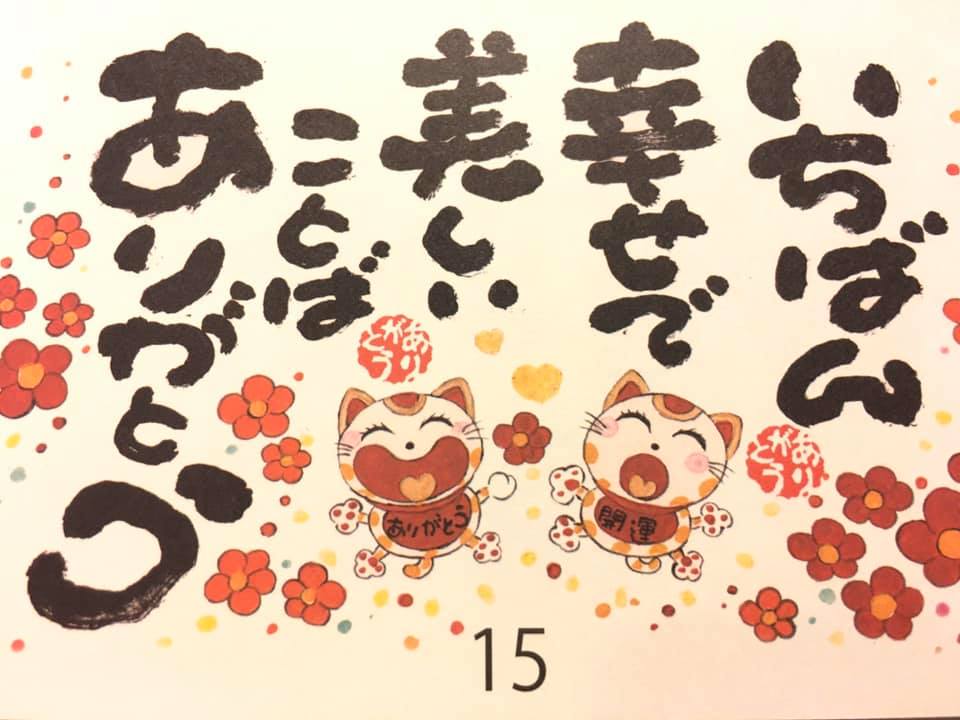 いちばん
幸せで
美しい
ことば
ありがとう
ありがとう
ありがとう
ありがとう
開運
15